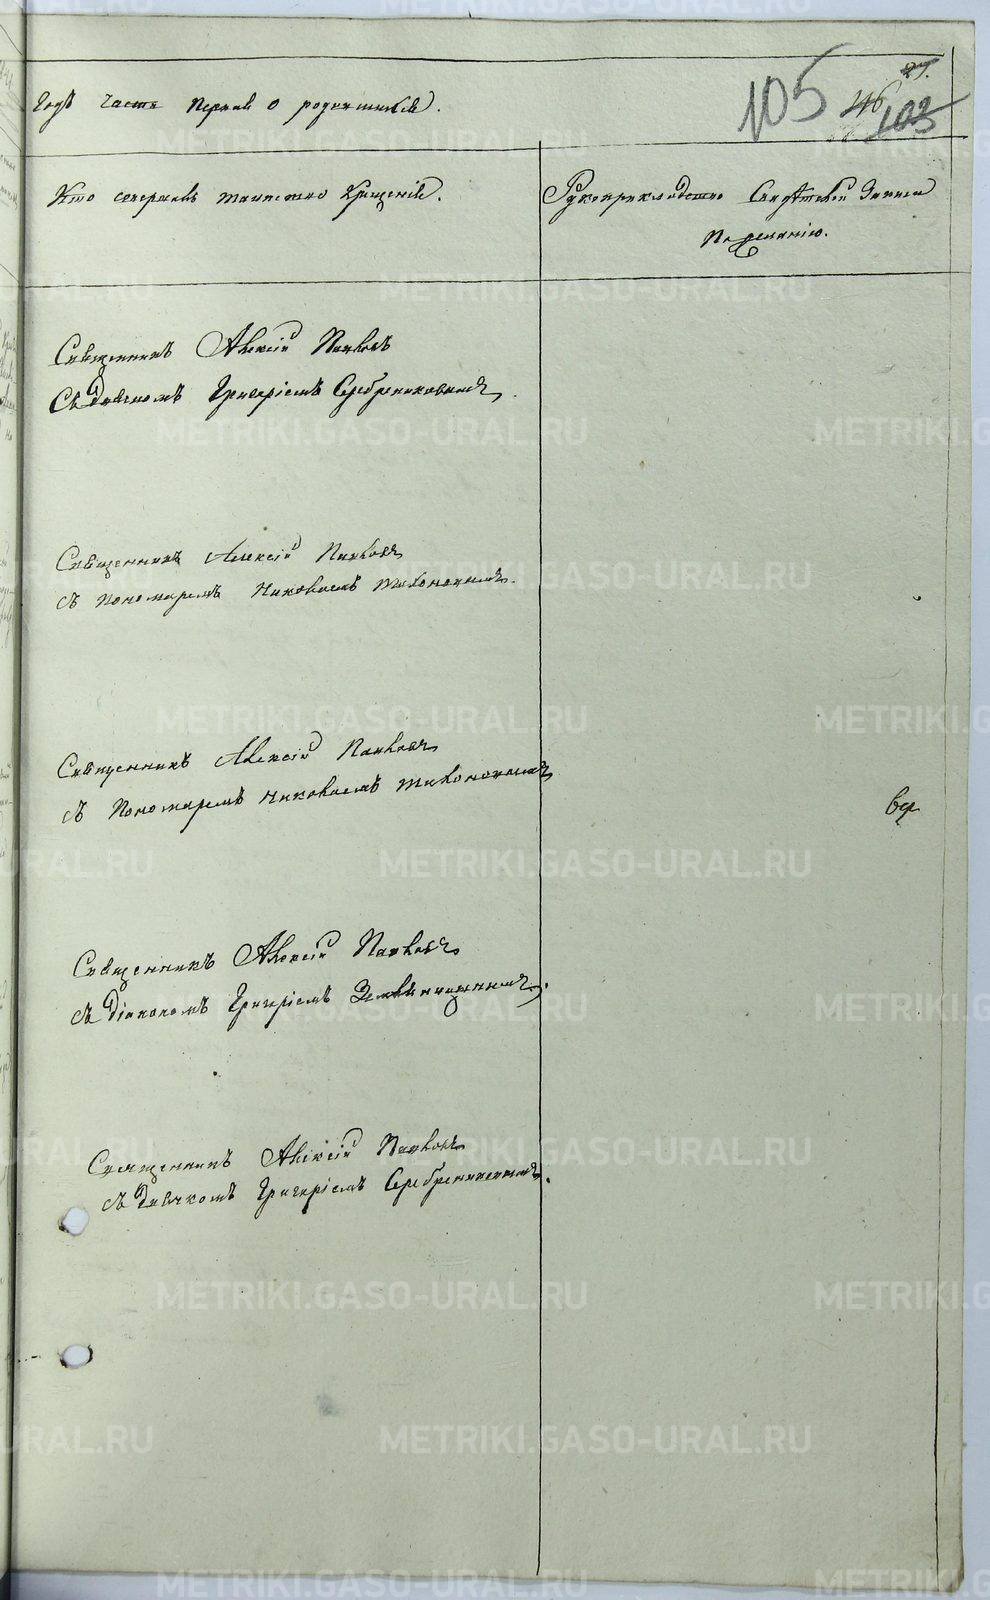 27.
105 46 103
Годъ часть первая о родившихся.
Кто совершалъ таинство крещенія.
Рукоприкладство Свидѣтелей записи
По желанію.
Священникъ Алексій Павловъ
Съ Дьячкомъ Григоріемъ Серебрениковымъ.
Священникъ Алексій Павловъ
съ Пономаремъ Николаемъ Тихоновымъ.
Священникъ Алексій Павловъ
съ Пономаремъ Николаемъ Тихоновымъ
Священникъ Алексій Павловъ
съ Діакономъ Григоріемъ
Священникъ Алексій Павловъ
съ Дьячкомъ Григоріемъ Серебрениковымъ.
METRIKI.GASO-URAL.RU